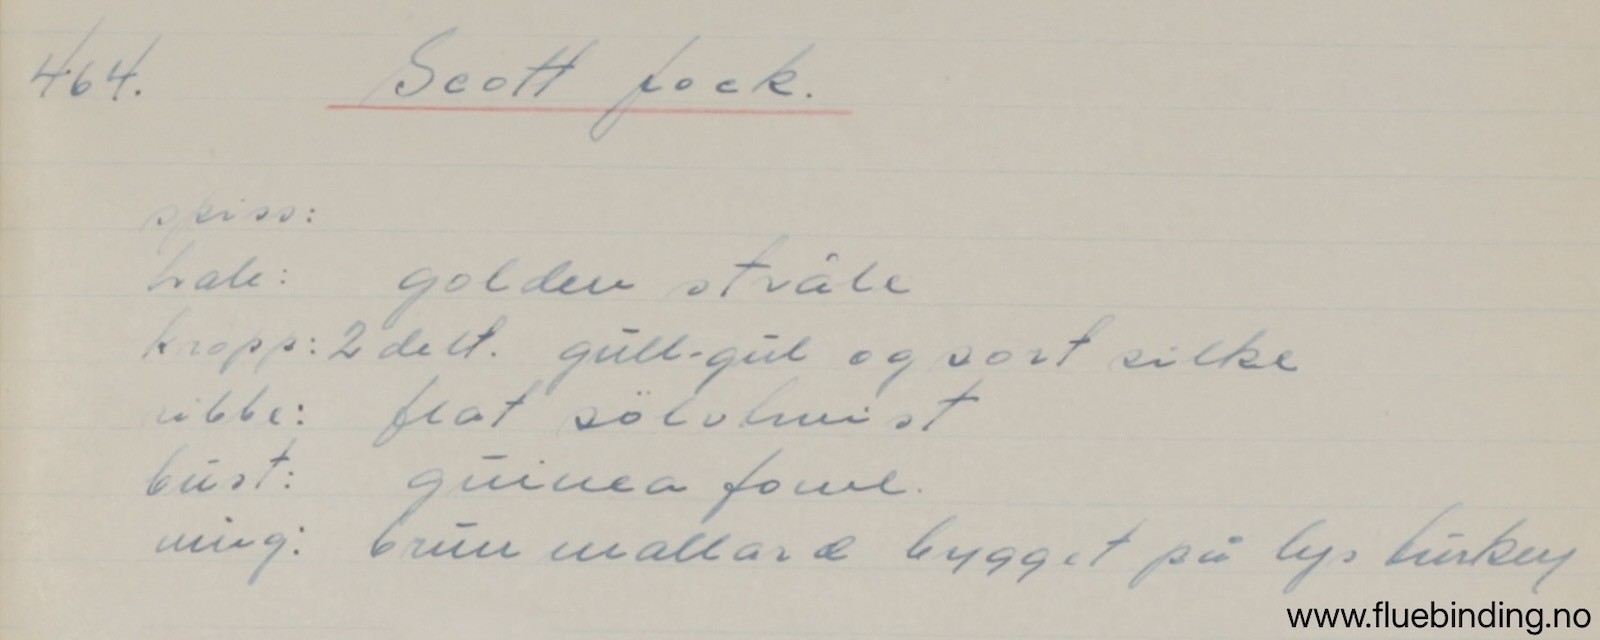 464. Scott Jock.
spiss:
hale: golden stråle
kropp: 2 delt. gull-gul og sort silke
ribbe: flat sölvtwist
bust: guinea fowl.
wing: brun mallard bygget på lys turkey
www.fluebinding.no